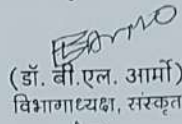 (डॉ. बी.एल. आर्मो)
विभागाध्यक्ष, संस्कृत